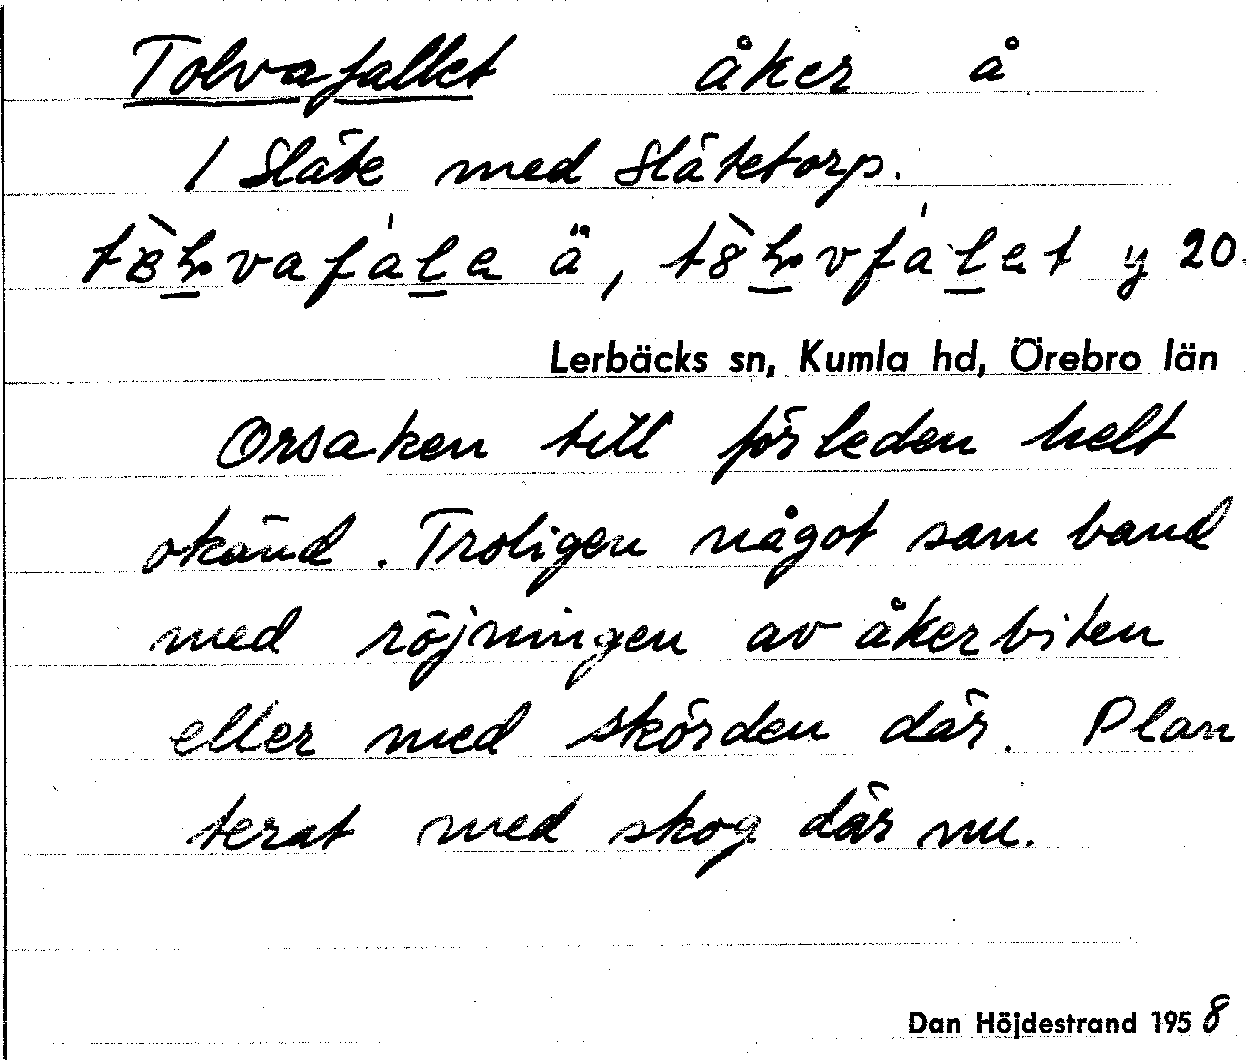 Tolvafallet åker å
1 Släte med Slätetorp.
Lerbäcks sn, Kumla hd, Örebro län
Orsaken till förleden helt
okänd. Troligen något sam band
med röjningen av åkerbiten
eller med skörden där. Plan
terat med skog där nu.
Dan Höjdestrand 1958